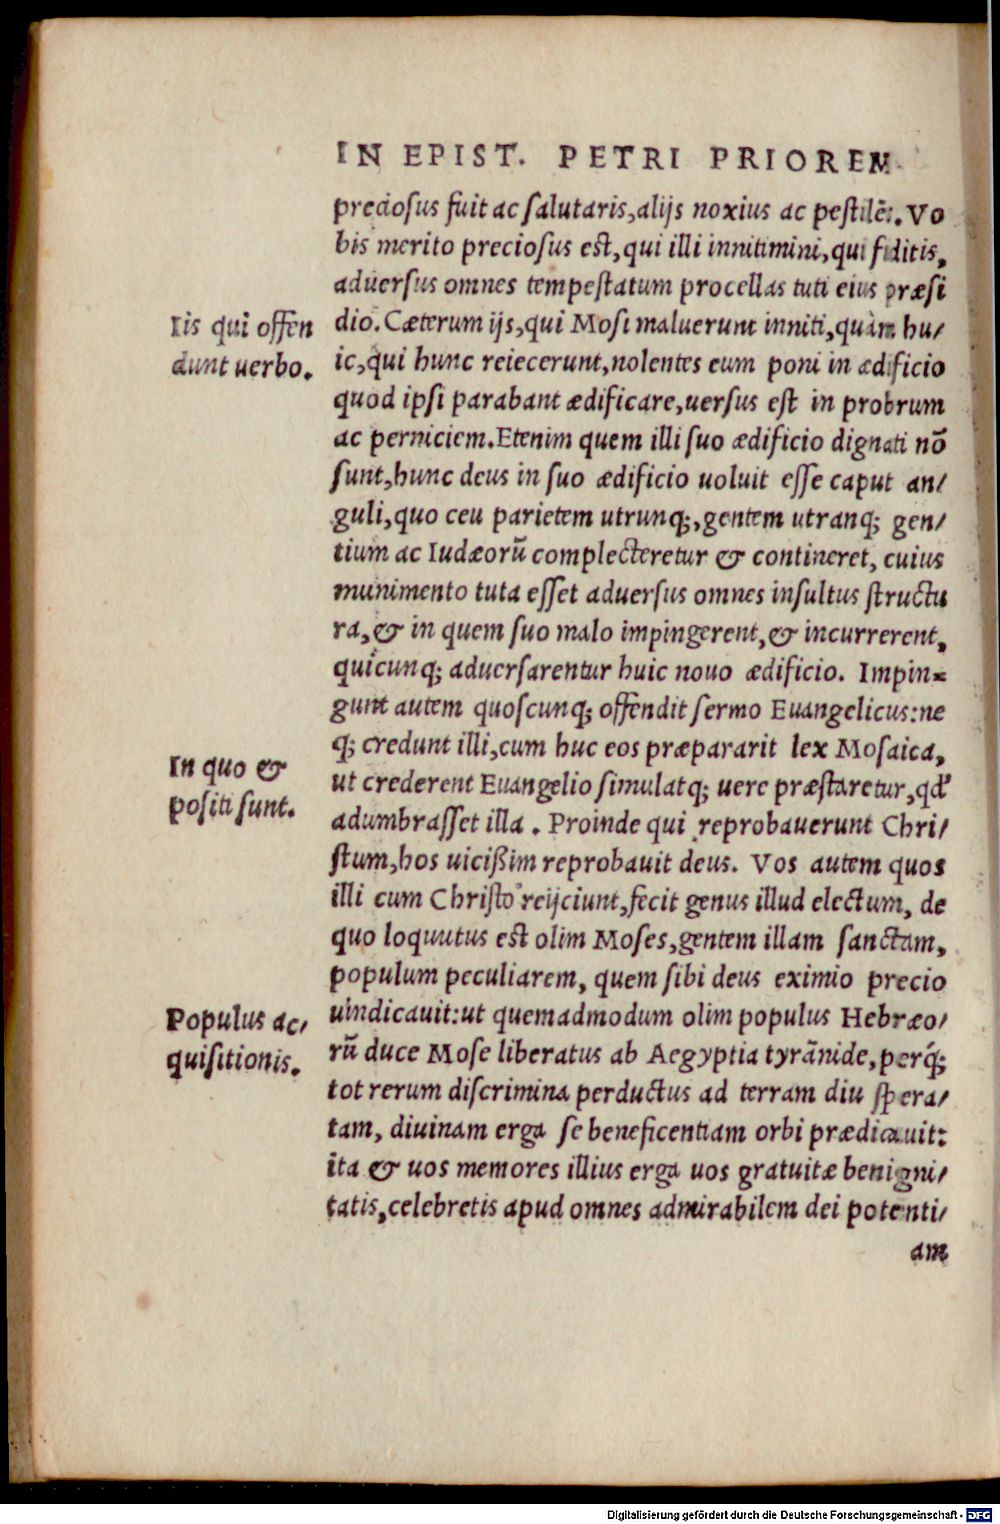 IN EPIST. PETRI PRIOREM
preciosus fuit ac salutaris,alijs noxius ac pestilẽs.Vo
bis merito preciosus est,qui illi innitimini,qui fiditis,
aduersus omnes tempestatum procellas tuti eius præsi
Iis qui offen
dunt uerbo.
dio.Cæterum ijs,qui Mosi maluerunt inniti,quàm hu/
ic,qui hunc reiecerunt,nolentes eum poni in ædificio
quod ipsi parabant ædificare,uersus est in probrum
ac perniciem.Etenim quem illi suo ædificio dignati nõ
sunt,hunc deus in suo ædificio uoluit esse caput an/
guli,quo ceu parietem utrunq;,gentem utranq; gen/
tium ac Iudæorũ complecteretur & contineret, cuius
munimento tuta esset aduersus omnes insultus structu
ra,& in quem suo malo impingerent,& incurrerent,
quicunq; aduersarentur huic nouo ædificio. Impin=
gunt autem quoscunq; offendit sermo Euangelicus:ne
q; credunt illi,cum huc eos præpararit lex Mosaica,
In quo &
positi sunt.
ut crederent Euangelio simulatq; uere præstaretur,qđ
adumbrasset illa . Proinde qui reprobauerunt Chri/
stum,hos uicißim reprobauit deus. Vos autem quos
illi cum Christo reijciunt,fecit genus illud electum, de
quo loquutus est olim Moses,gentem illam sanctam,
populum peculiarem, quem sibi deus eximio precio
Populus ac/
quisitionis.
uindicauit:ut quemadmodum olim populus Hebræo/
rũ duce Mose liberatus ab Aegyptia tyrãnide,perq́;
tot rerum discrimina perductus ad terram diu spera/
tam, diuinam erga se beneficentiam orbi prædicauit:
ita & uos memores illius erga uos gratuitæ benigni/
tatis,celebretis apud omnes admirabilem dei potenti/
am
Digitalisierung gefördert durch die Deutsche Forschungsgemeinschaft - DFG